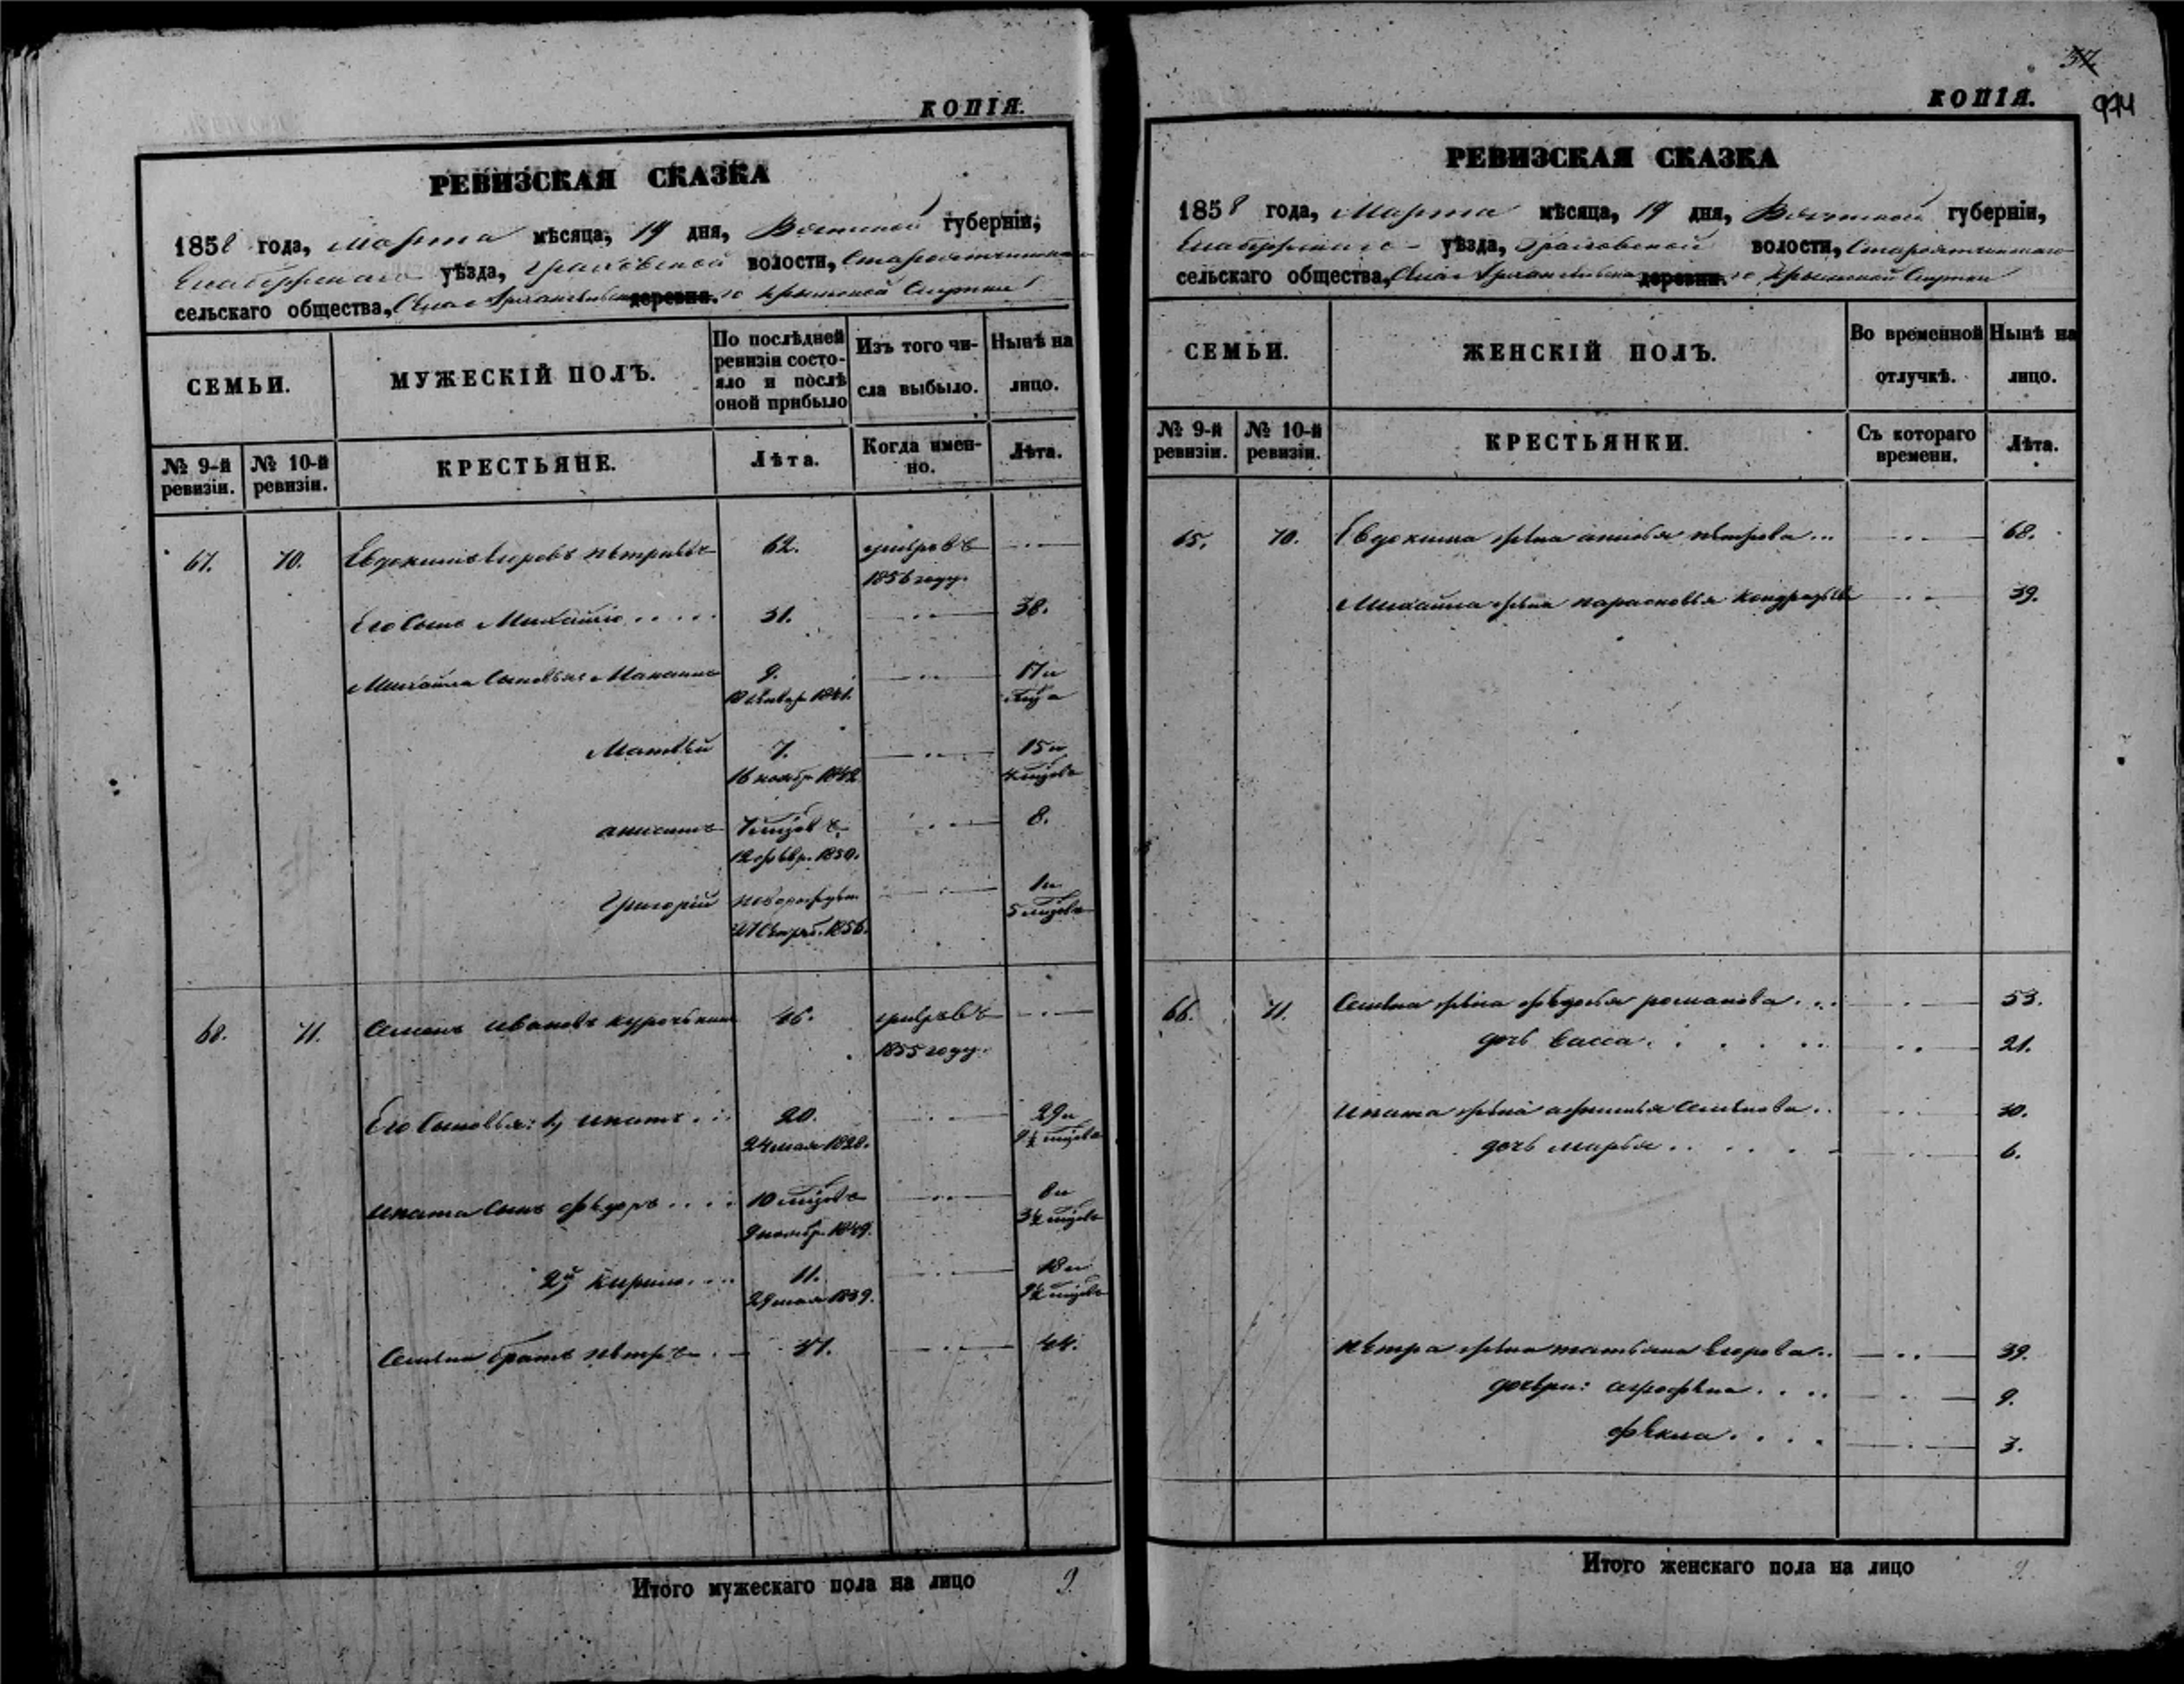 КОПІЯ.
РЕВИЗСКАЯ СКАЗКА
1858 года, Марта мѣсяца, 19 дня, Вятской губерніи,
Елабужскаго уѣзда, Граховской волости, Староятчинскаго
сельскаго общества, Села Архангельска деревни. то Крымской Слудки
СЕМЬИ.
МУЖЕСКІЙ ПОЛЪ.
По послѣдней ревизіи состояло и послѣ оной прибыло
Изъ того числа выбыло.
Нынѣ на лицо.
№ 9-й ревизіи.
№ 10-й ревизіи.
КРЕСТЬЯНЕ.
Лѣта.
Когда именно.
Лѣта.
67. 70. Евдокимъ Егоровъ 62. умеръ въ
1856 году.
Его сынъ Михайло 31. 38.
Михайла сыновья Максимъ 9. 17 и
1841.
Матвѣй 7. 15 и
16 ноябр. 1842 4 мцовъ
7 мцовъ 8.
12 февр. 1850.
Григорій новорожден. 1 и
27 Сентяб. 1856. 5 мцовъ
68. 71. Семенъ Ивановъ Курочкинъ 46. умеръ въ
1855 году.
Его сыновья: 1, Ипатъ 20. 29 и
24 мая 1828. 9½ мцовъ
Ипата сынъ Ѳедоръ 10 мцовъ 8 и
9 ноябр. 1849. 3½ мцовъ
2й Кирило 11. 18 и
29 мая 1839. 9½ мцовъ
Семена братъ Петръ 37. 44.
Итого мужескаго пола на лицо 9.
37
КОПІЯ.
974
РЕВИЗСКАЯ СКАЗКА
1858 года, Марта мѣсяца, 19 дня, Вятской губерніи,
Елабужскаго уѣзда, Граховской волости, Староятчинскаго
сельскаго общества, Села Архангельска деревни. то Крымской Слудки
СЕМЬИ.
ЖЕНСКІЙ ПОЛЪ.
Во временной отлучкѣ.
Нынѣ на лицо.
№ 9-й ревизіи.
№ 10-й ревизіи.
КРЕСТЬЯНКИ.
Съ котораго времени.
Лѣта.
65. 70. Евдокима жена Петрова 68.
Михайла жена Парасковья Кондратьева 39.
66. 71. Семена жена Ѳедосья Романова 53.
дочь Васса 21.
Ипата жена Афимья Семенова 30.
дочь Марья 6.
Петра жена Татьяна Егорова 39.
дочери: Аграфена 9.
Ѳекла 3.
Итого женскаго пола на лицо 9.